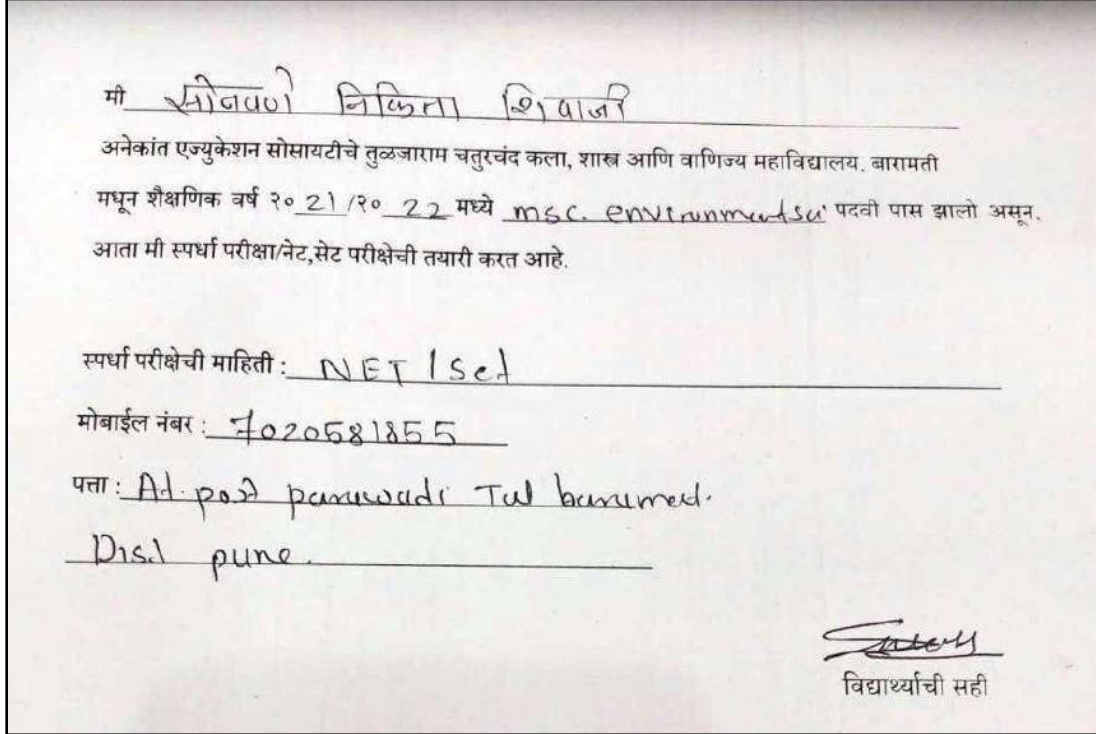 मी सोनवणे निकिता शिवाजी
अनेकांत एज्युकेशन सोसायटीचे तुळजाराम चतुरचंद कला, शास्त्र आणि वाणिज्य महाविद्यालय. बारामती
मधून शैक्षणिक वर्ष २० 21 /२० 22 मध्ये msc. environmentsci पदवी पास झालो असून.
आता मी स्पर्धा परीक्षा/नेट,सेट परीक्षेची तयारी करत आहे.
स्पर्धा परीक्षेची माहिती : NET / Set
मोबाईल नंबर : 7020581855
पत्ता : At. post Tal
Dist pune.
विद्यार्थ्याची सही